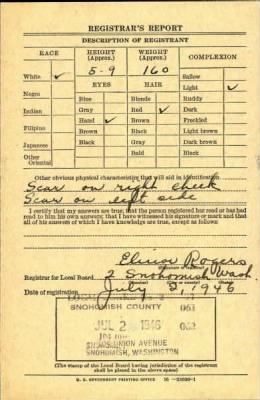 REGISTRAR'S REPORT
DESCRIPTION OF REGISTRANT
RACE HEIGHT (Approx.) WEIGHT (Approx.) COMPLEXION
White ✓ 5-9 160 Sallow
Light ✓
Negro EYES HAIR Ruddy
Blue Blonde
Indian Gray Red ✓ Dark
Hazel ✓ Brown Freckled
Filipino Brown Black Light brown
Japanese Black Gray Dark brown
Other Oriental Bald Black
Other obvious physical characteristics that will aid in identification
Scar on right cheek
Scar on left side
I certify that my answers are true; that the person registered has read or has had
read to him his own answers; that I have witnessed his signature or mark and that
all of his answers of which I have knowledge are true, except as follows
Elinor Rogers
Registrar for Local Board 2 Snohomish Wash.
Date of registration July 2, 1946
SNOHOMISH COUNTY 061
JUL 2 1946 003
UNION AVENUE
SNOHOMISH, WASHINGTON
(The stamp of the Local Board having jurisdiction of the registrant
shall be placed in the above space.)
U. S. GOVERNMENT PRINTING OFFICE 16—21630-1